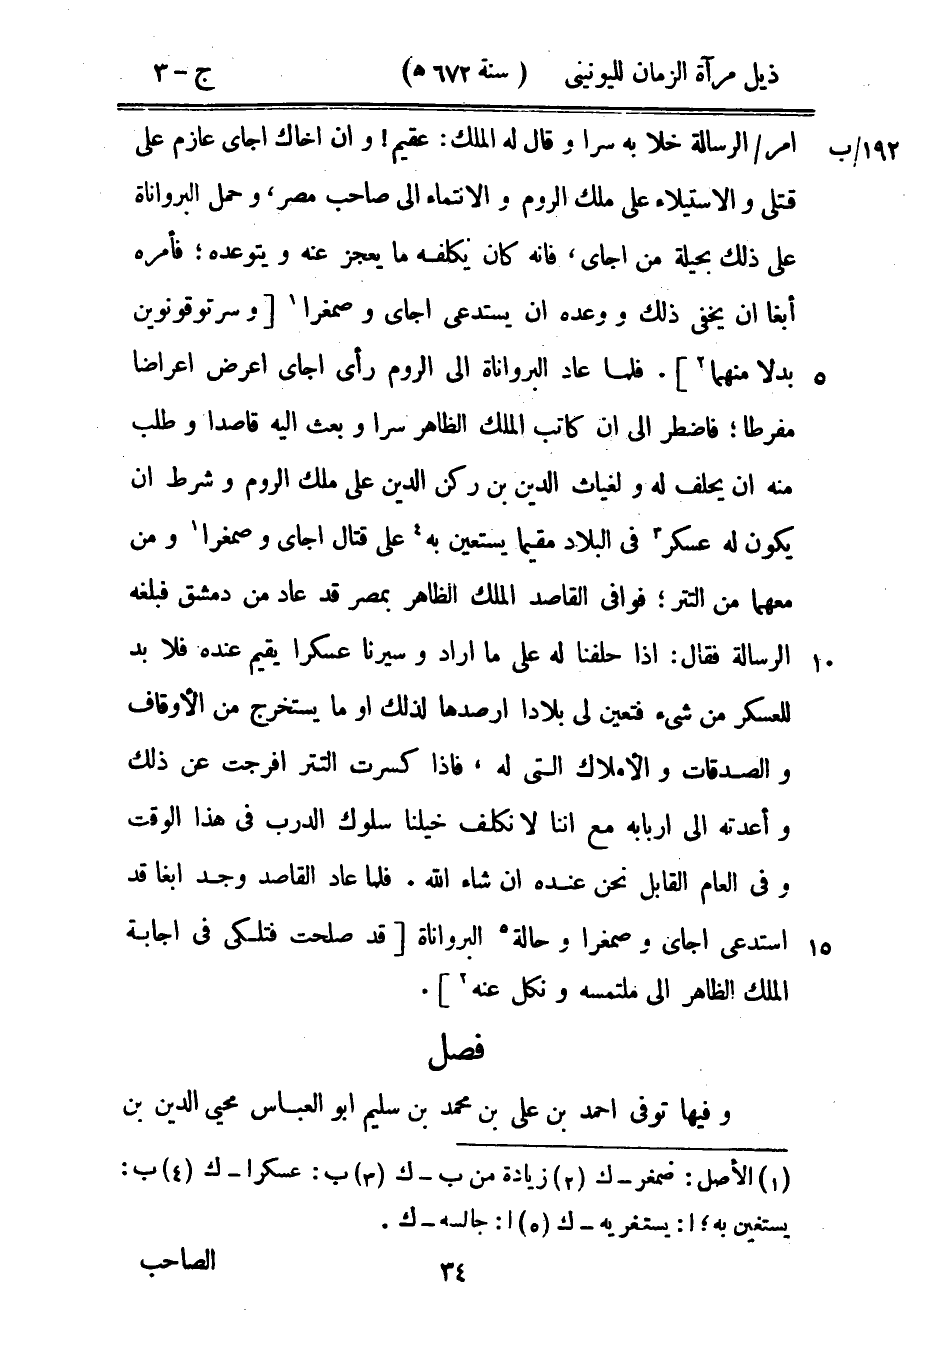 ذيل مرآة الزمان لليونينى ( سنة ٦٧٢ ه ) ج - ٣
١٩٢/ب امر/ الرسالة خلا به سرا و قال له الملك: عقيم! و ان اخاك اجاى عازم على
قتلى و الاستيلاء على ملك الروم و الانتماء الى صاحب مصر، و حمل البرواناة
على ذلك بحيلة من اجاى، فانه كان يكلفه ما يعجز عنه و يتوعده؛ فأمره
أبغا ان يخفى ذلك و وعده ان يستدعى اجاى و صمغرا١ [ و سرتوقونوين
٥ بدلا منهما٢ ] . فلما عاد البرواناة الى الروم رأى اجاى اعرض اعراضا
مفرطا؛ فاضطر الى ان كاتب الملك الظاهر سرا و بعث اليه قاصدا و طلب
منه ان يحلف له و لغياث الدين بن ركن الدين على ملك الروم و شرط ان
يكون له عسكر٣ فى البلاد مقيما يستعين به٤ على قتال اجاى و صمغرا١ و من
معهما من التتر؛ فوافى القاصد الملك الظاهر بمصر قد عاد من دمشق فبلغه
١٠ الرسالة فقال: اذا حلفنا له على ما اراد و سيرنا عسكرا يقيم عنده فلا بد
للعسكر من شىء فتعين لى بلادا ارصدها لذلك او ما يستخرج من الأوقاف
و الصدقات و الأملاك التى له ، فاذا كسرت التتر افرجت عن ذلك
و أعدته الى اربابه مع اننا لا نكلف خيلنا سلوك الدرب فى هذا الوقت
و فى العام القابل نحن عنده ان شاء الله . فلما عاد القاصد وجد ابغا قد
١٥ استدعى اجاى و صمغرا و حالة٥ البرواناة [ قد صلحت فتلكى فى اجابة
الملك الظاهر الى ملتمسه و نكل عنه٢ ] .
فصل
و فيها توفى احمد بن على بن محمد بن سليم ابو العباس محيى الدين بن
(١) الأصل: ضمغر - ك (٢) زيادة من ب - ك (٣) ب: عسكرا - ك (٤) ب:
يستغين به؛ ا: يستغريه - ك (٥) ا: جالسه - ك .
٣٤ الصاحب